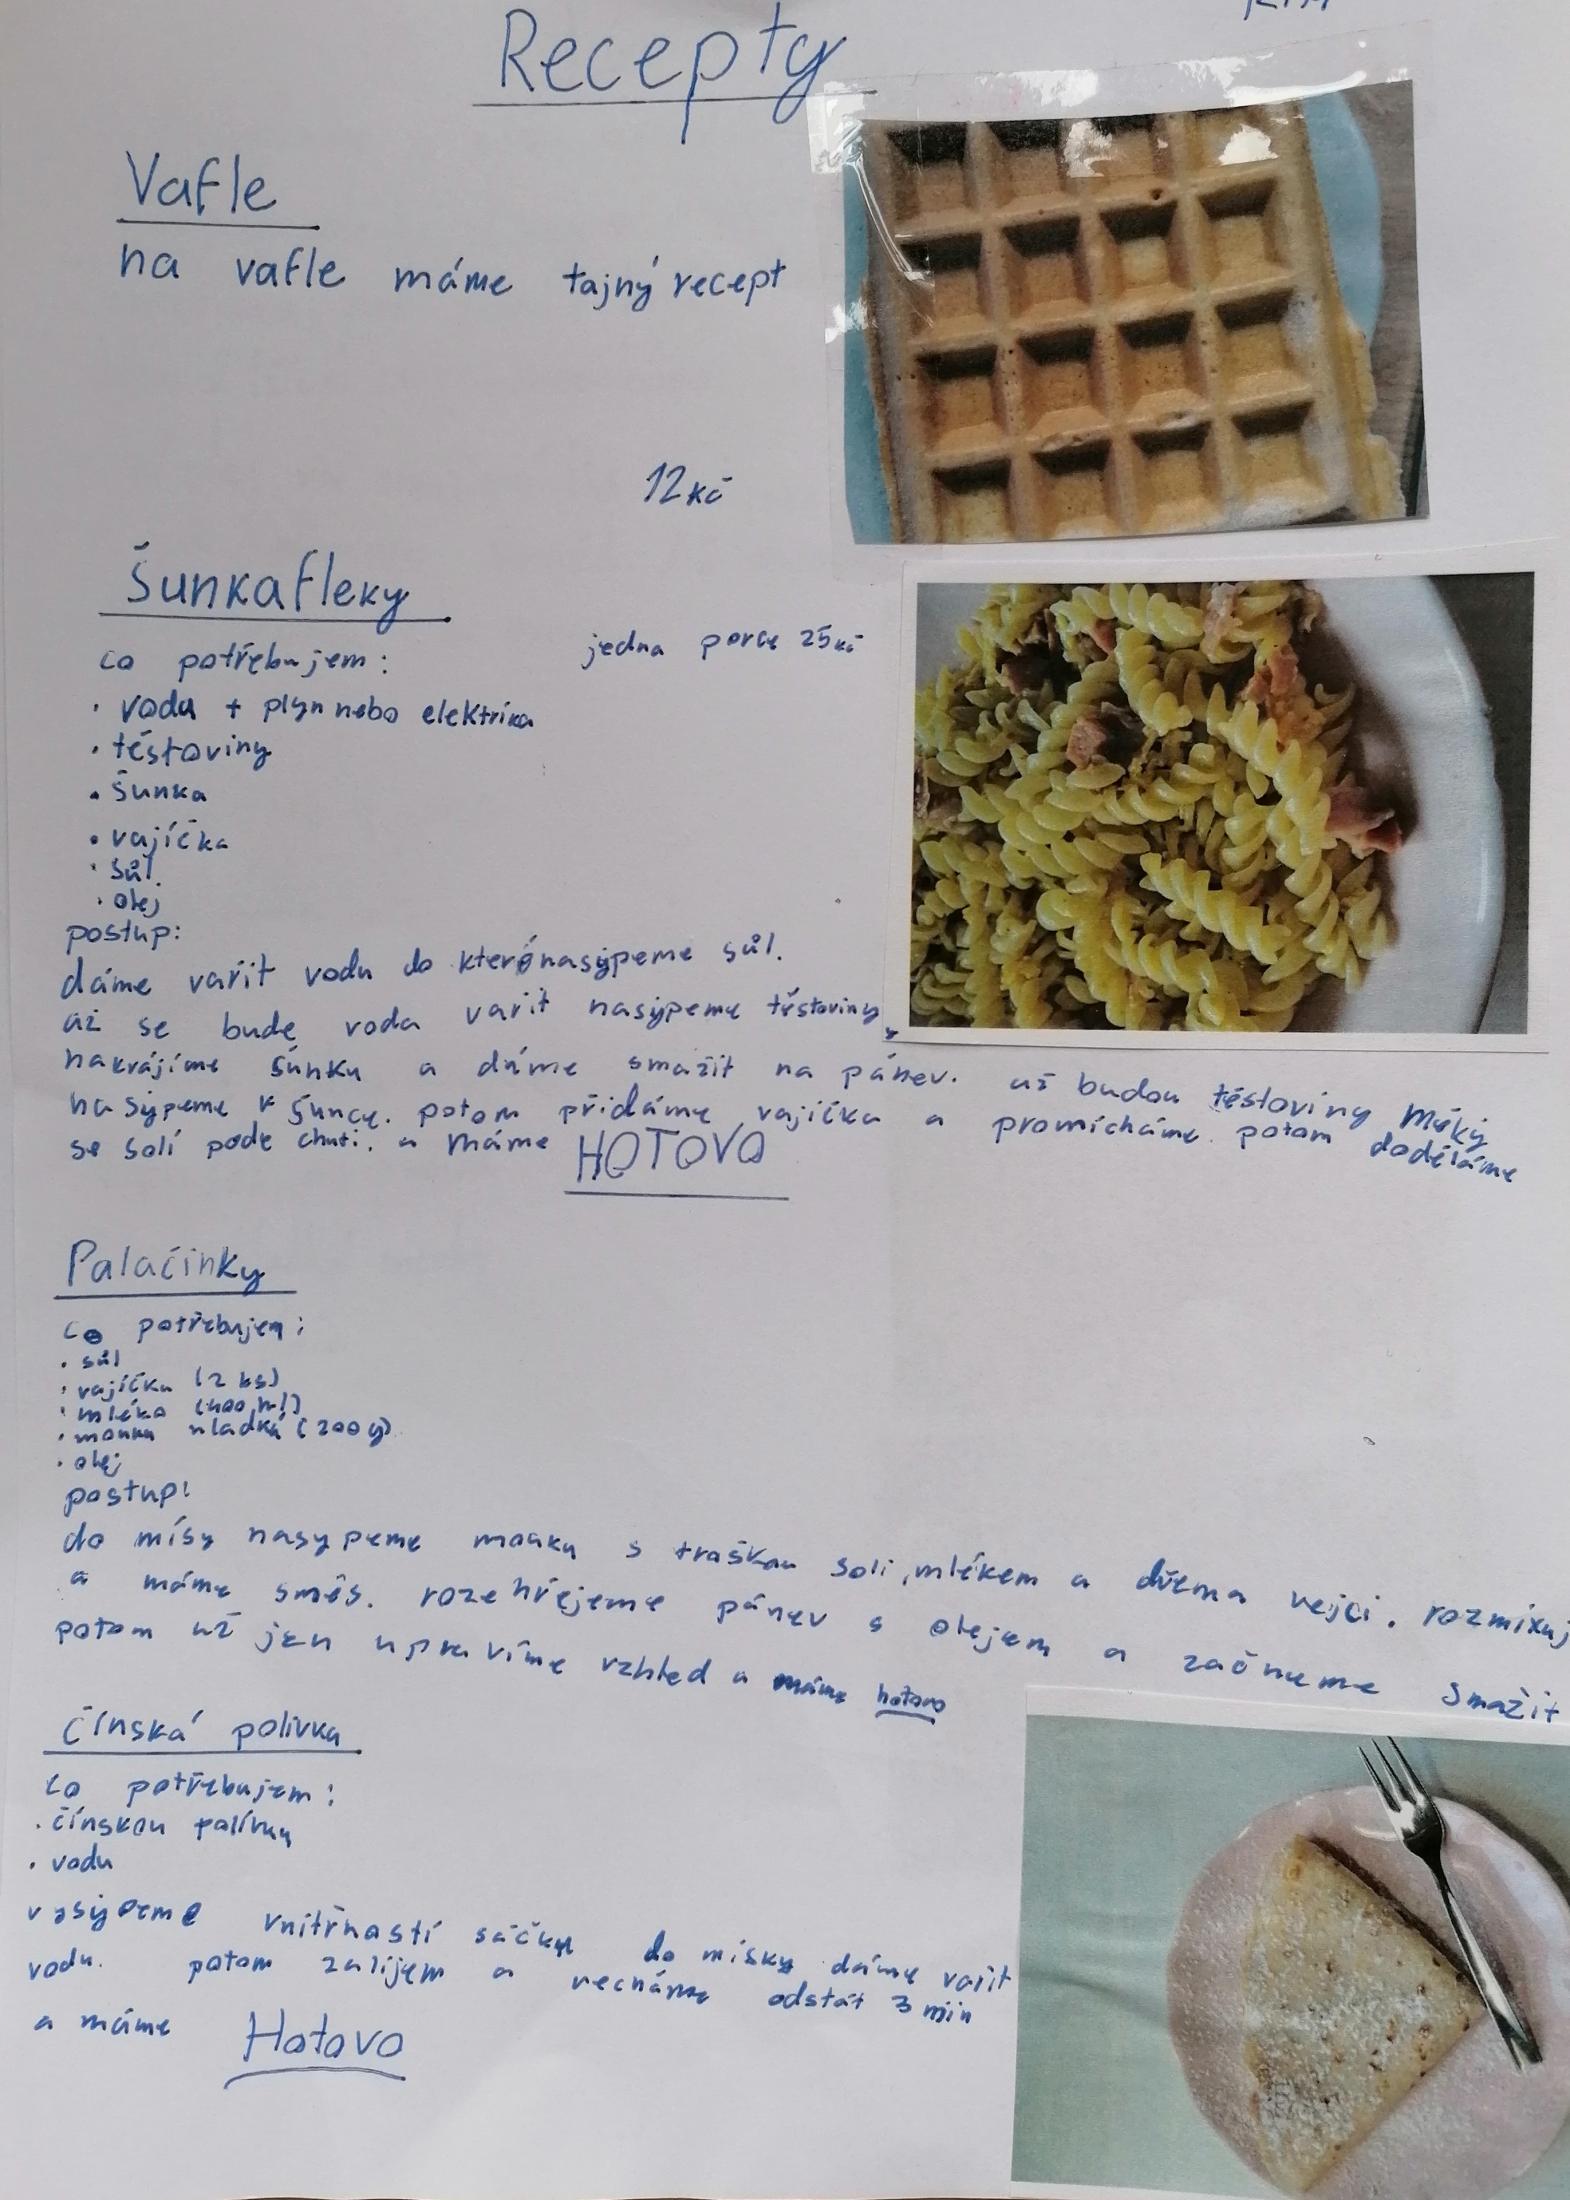 Recepty
Vafle
na vafle máme tajný recept
12kč
Šunkafleky
co potřebujem:
jedna porce 25kč
• voda + plyn nebo elektrika
• těstoviny
• šunka
• vajíčka
• sůl
• olej
postup:
dáme vařit vodu do které nasypeme sůl.
až se bude voda vařit nasypeme těstoviny,
nakrájíme šunku a dáme smažit na pánev. až budou těstoviny měký
nasypeme k šunce. potom přidáme vajíčka a promícháme. potom doděláme
se solí pode chuti. a máme HOTOVO
Palačinky
co potřebujem:
• sůl
• vajíčka (2 ks)
• mléko (400 ml)
• mouka hladká (200g)
• olej
postup:
do mísy nasypeme mouku s troškou soli, mlékem a dvěma vejci. rozmixuj
a máme směs. rozehřejeme pánev s olejem a začneme smažit
potom už jen upravíme vzhled a máme hotovo
čínská polívka
co potřebujem:
• čínskou polívku
• vodu
vysypeme vnitřností sáčku do misky dáme vařit
vodu. potom zalijem a necháme odstát 3 min
a máme Hotovo